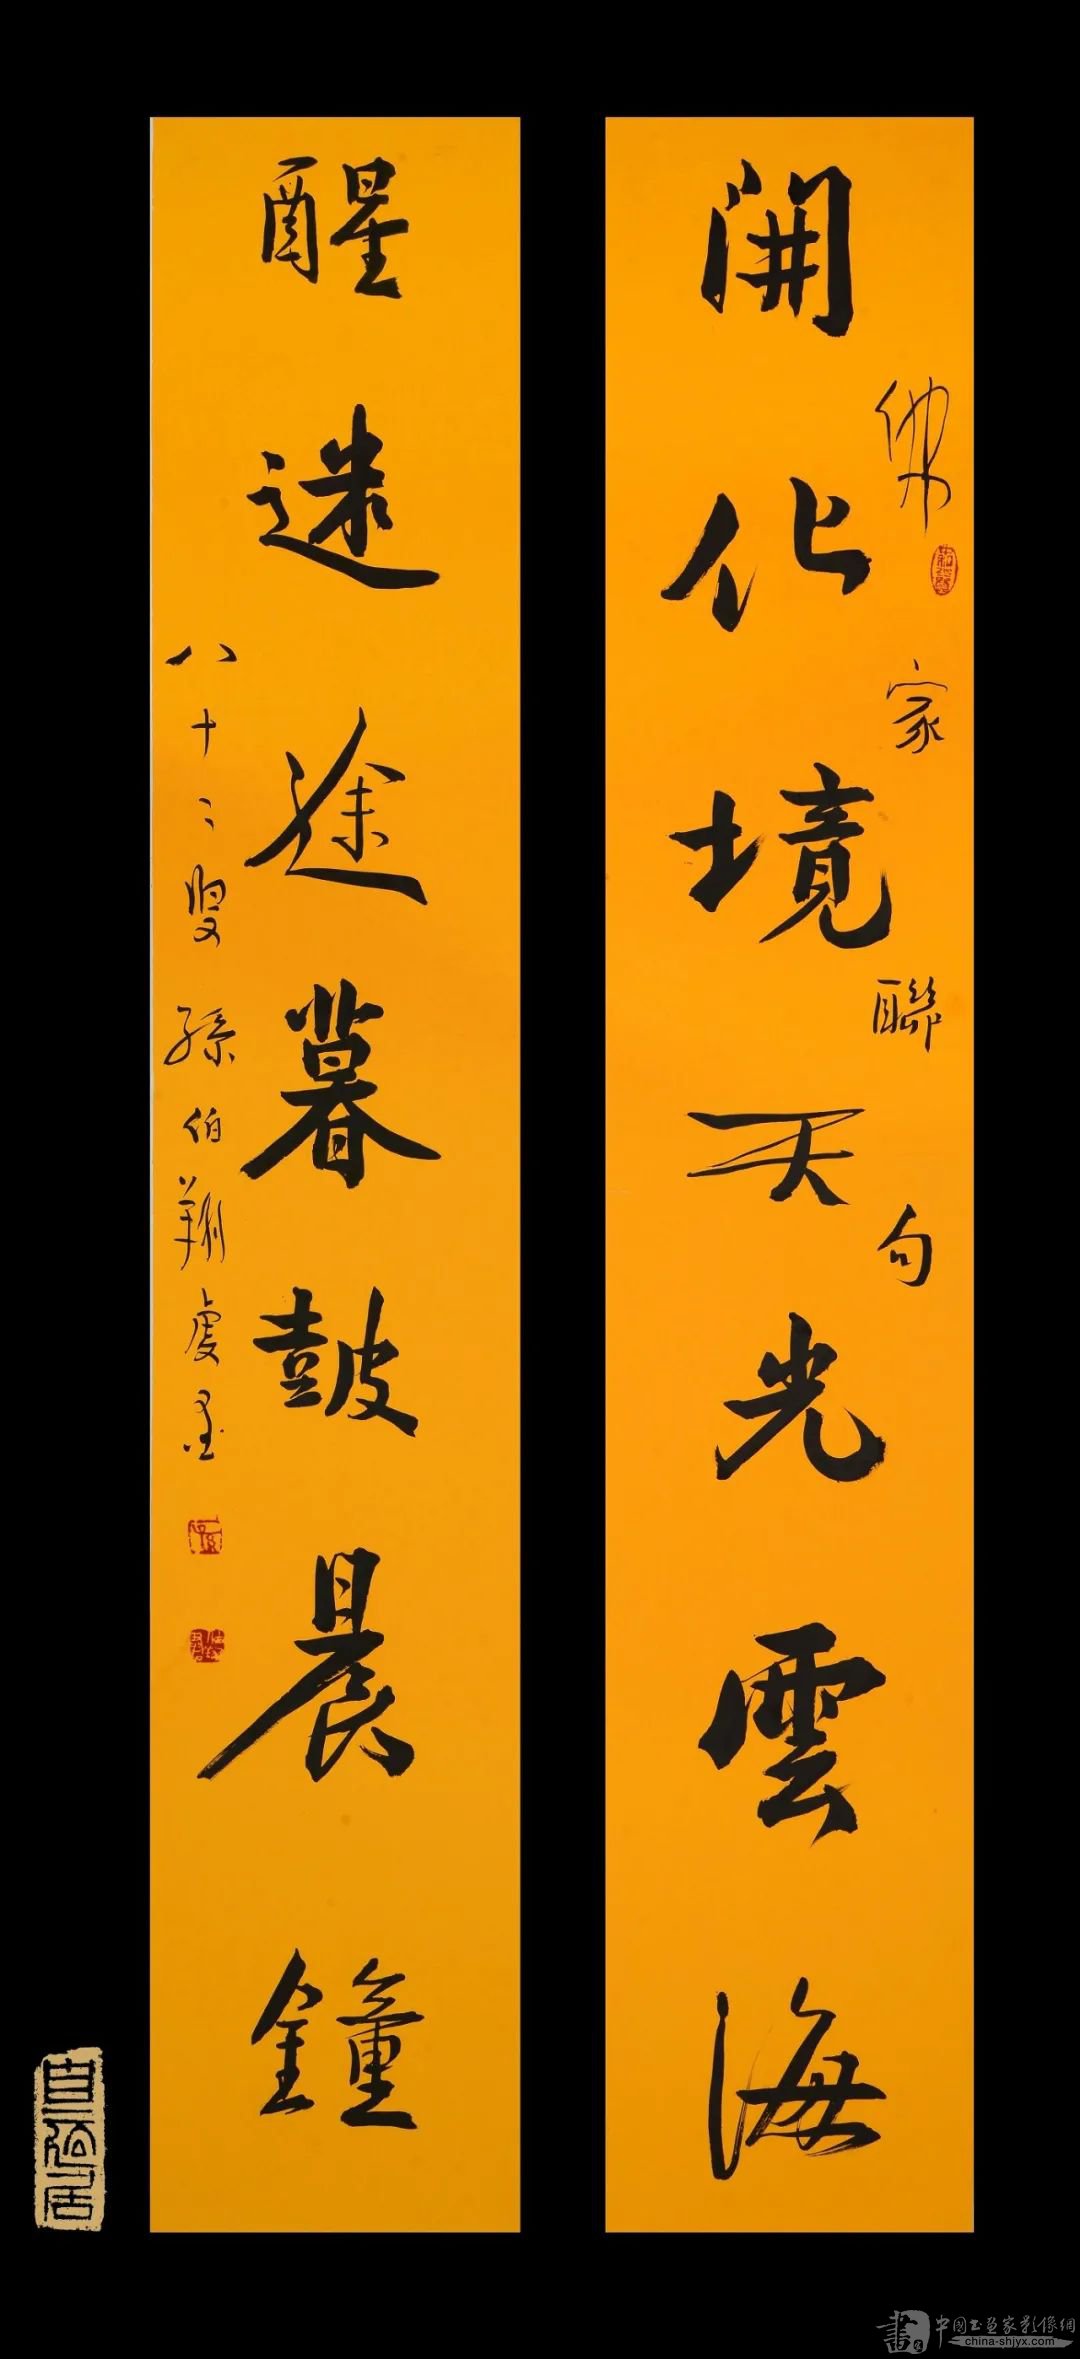 開化境天光雲海
佛家聯句
醒迷途暮鼓晨鐘
八十二叟孫伯翔虔墨
中國书画家影像網
china-shjyx.com